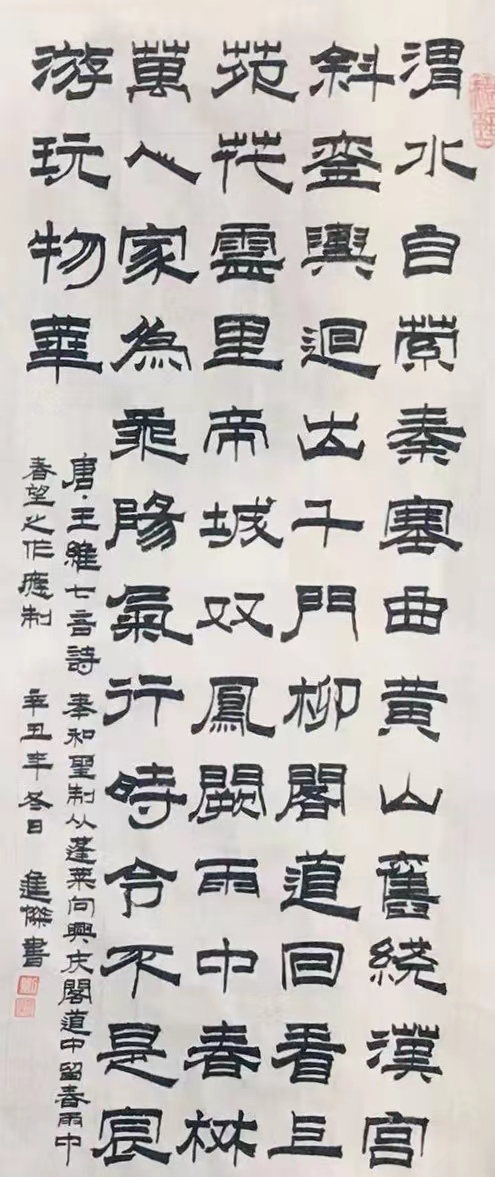 渭水自萦秦塞曲黄山舊绕漢宫
斜銮輿迴出千門柳閣道回看上
苑花雲里帝城双鳳闕雨中春树
萬人家為乘陽氣行時令不是宸
游玩物華
唐·王維七言詩 奉和聖制从蓬莱向興庆閣道中留春雨中
春望之作應制 辛丑年冬日 進傑書